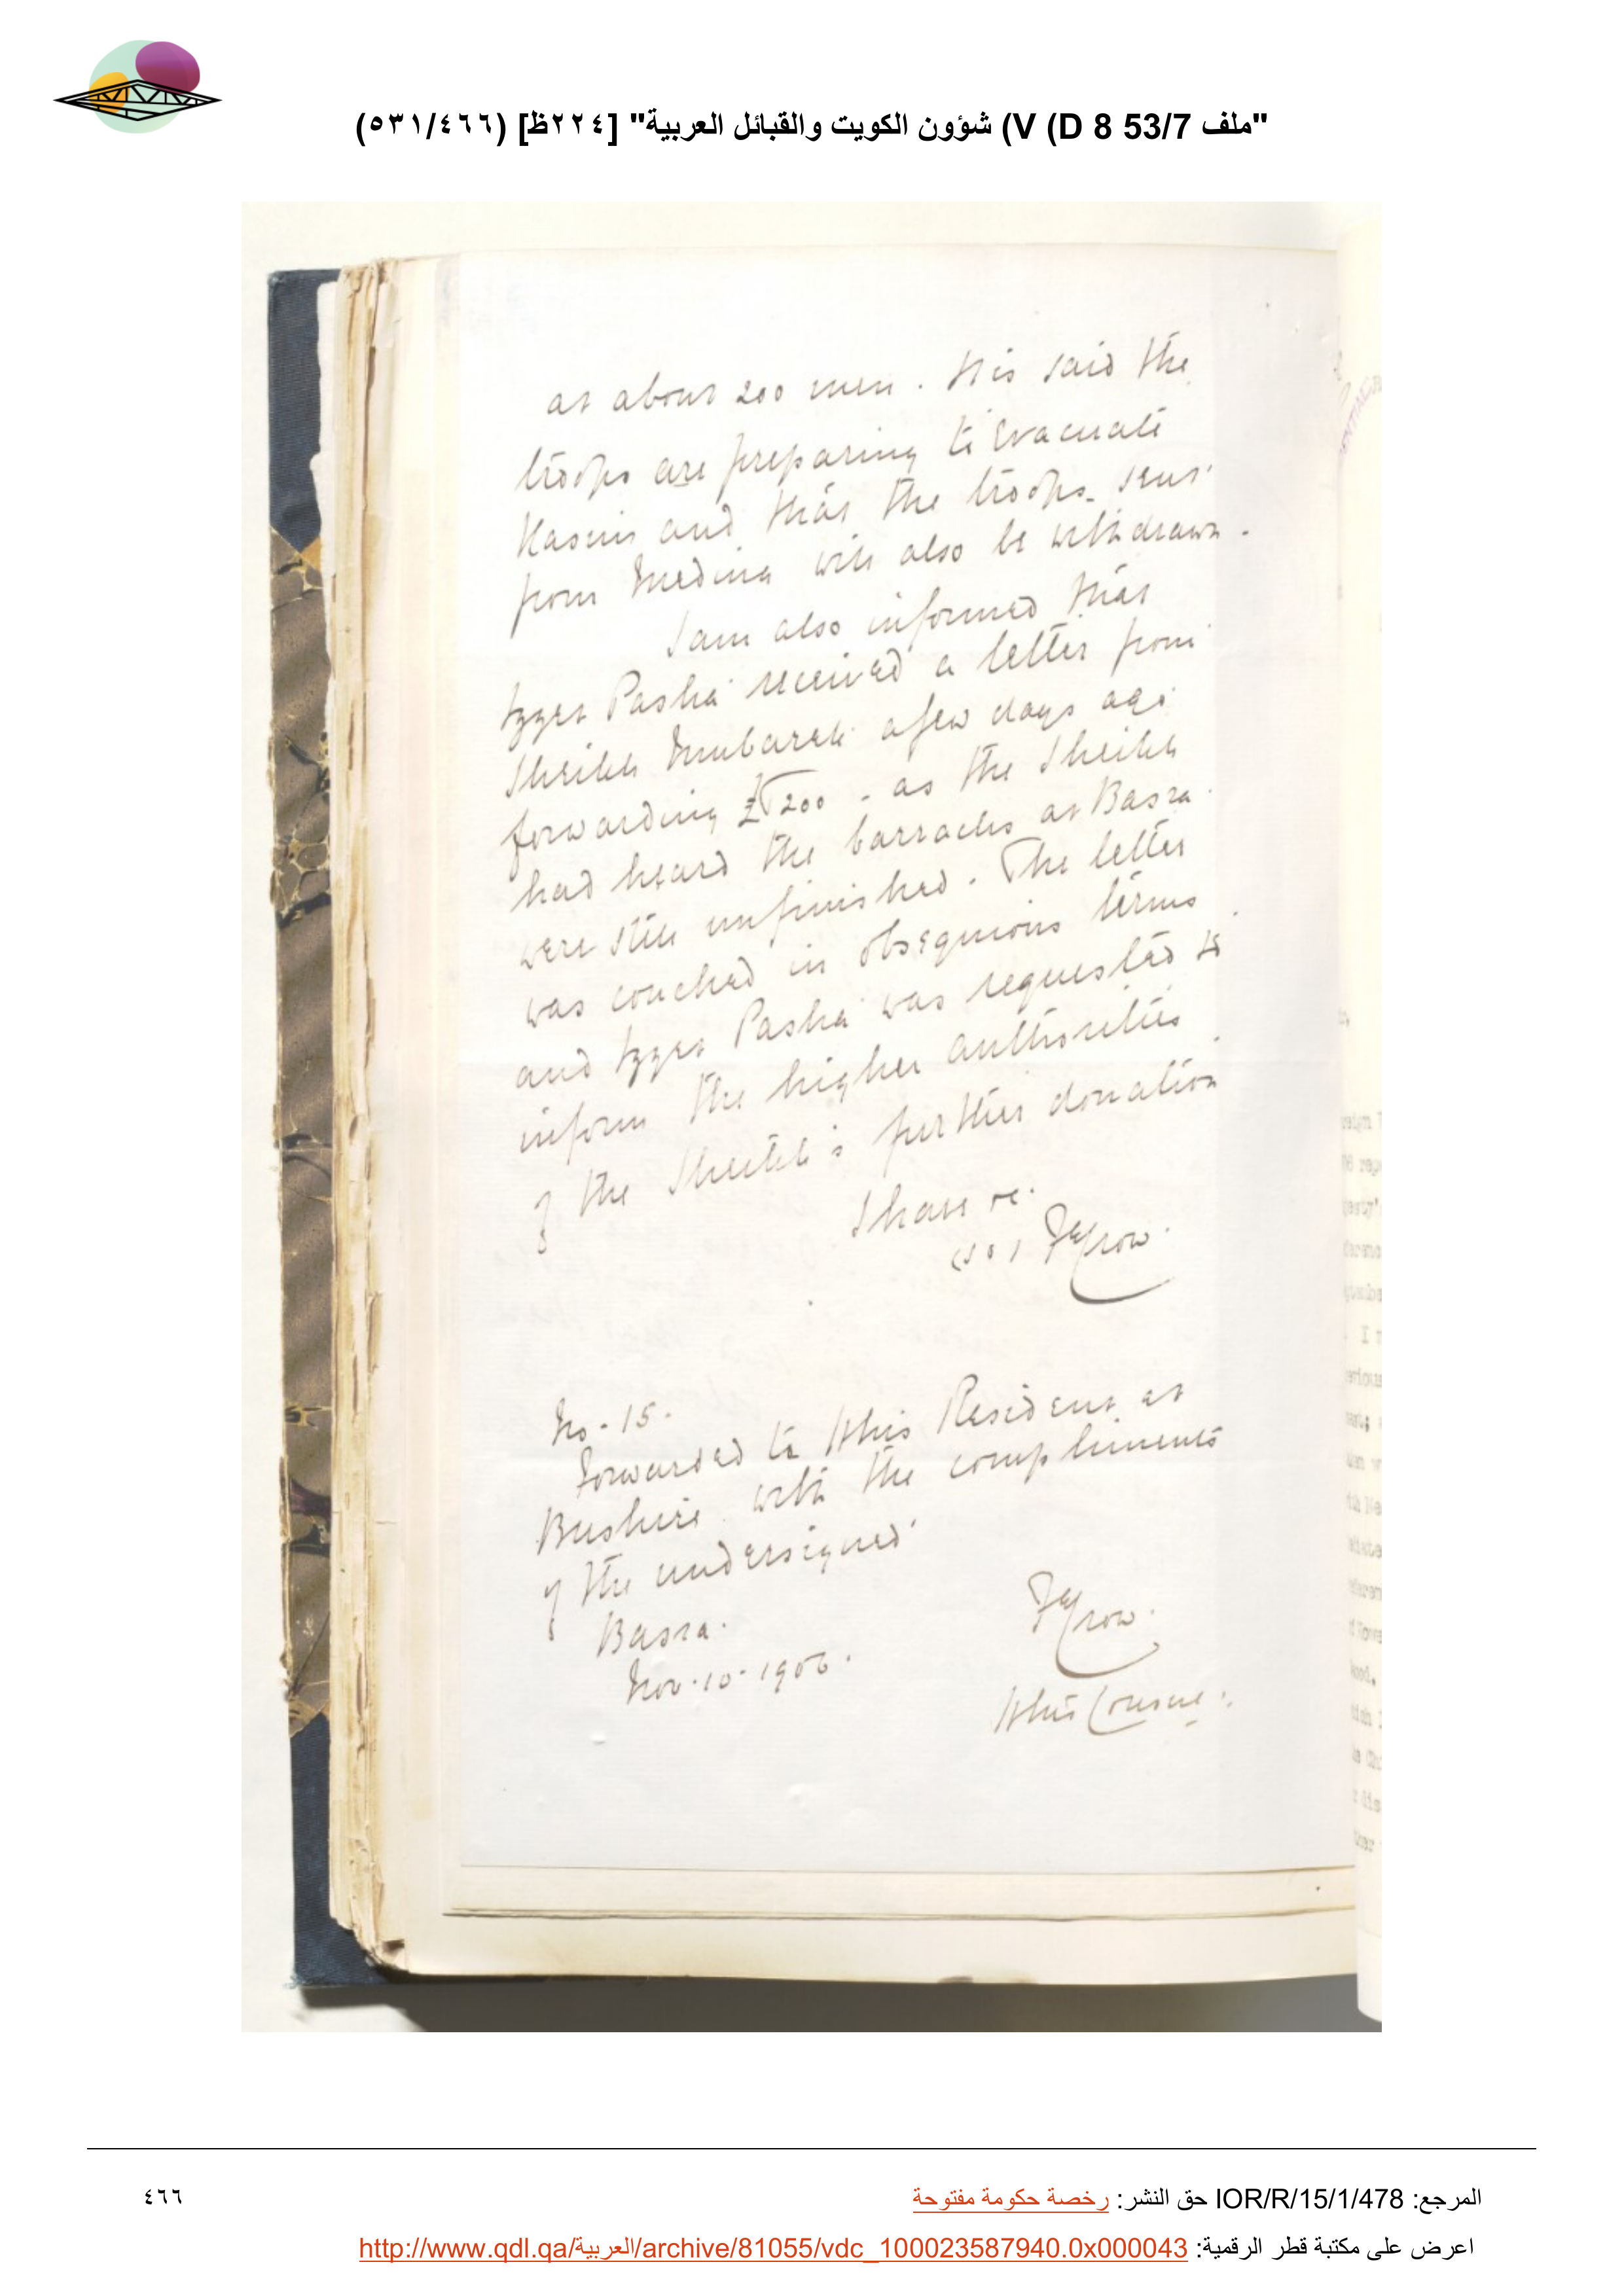 "ملف 53/7 V (D 8) شؤون الكويت والقبائل العربية" [٢٢٤ظ] (٥٣١/٤٦٦)
at about 200 men. It is said the
troops are preparing to evacuate
Kasim and that the troops sent
from Medina will also be withdrawn.
I am also informed that
Izzet Pasha received a letter from
Sheikh Mubarak a few days ago
forwarding £T 200 - as the Sheikh
had heard the barracks at Basra
were still unfinished. The letter
was couched in obsequious terms
and Izzet Pasha was requested to
inform the higher authorities
of the Sheikh's further donation
I have &c.
(sd) FECrow.
No. 15.
Forwarded to HMs Resident at
Bushire with the compliments
of the undersigned
Basra.
Nov. 10. 1906.
FECrow.
HMs Consul.
المرجع: IOR/R/15/1/478 حق النشر: رخصة حكومة مفتوحة
٤٦٦
اعرض على مكتبة قطر الرقمية: http://www.qdl.qa/العربية/archive/81055/vdc_100023587940.0x000043